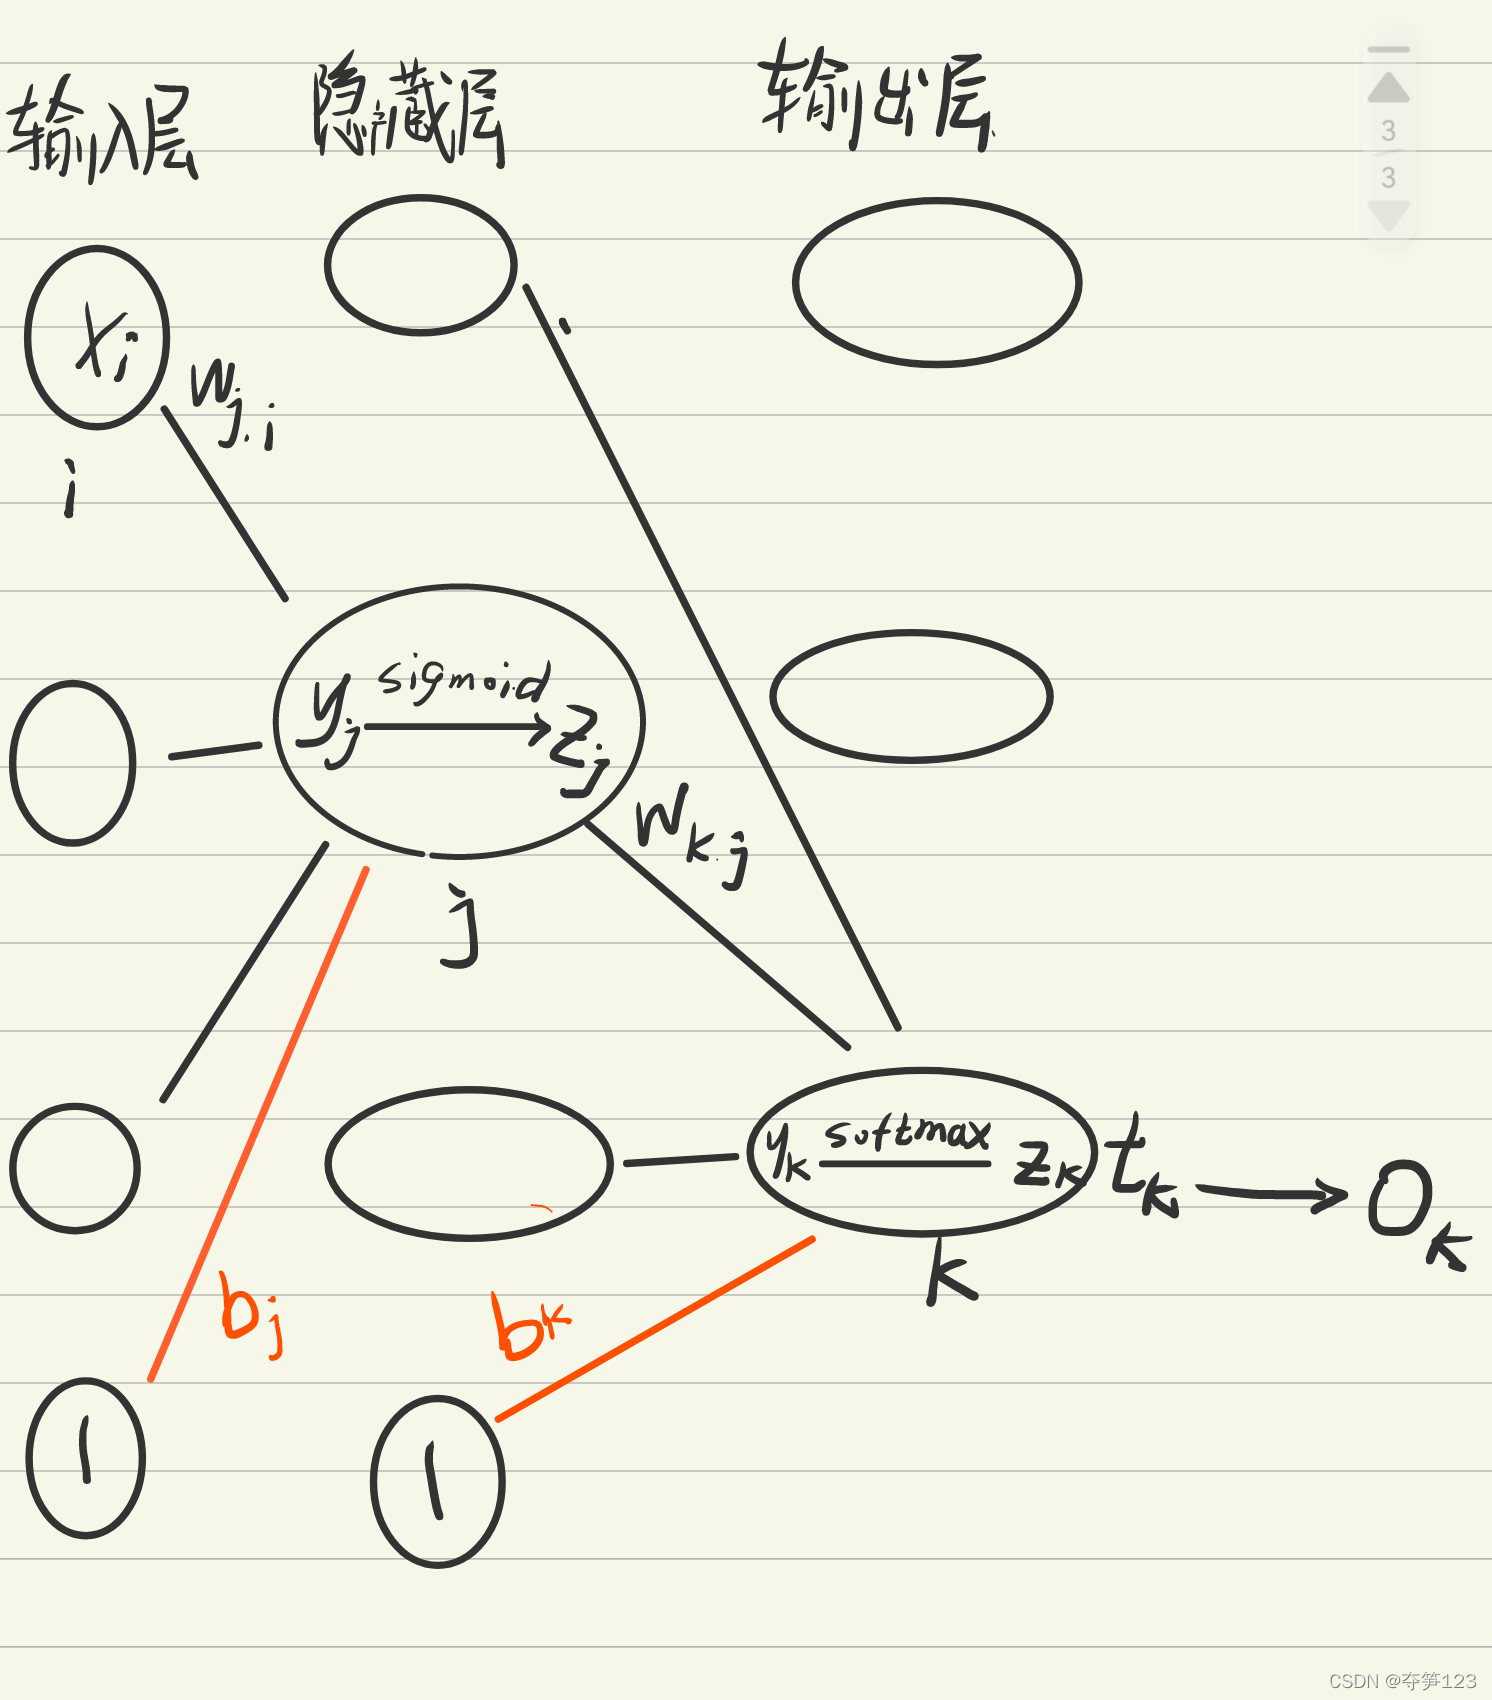 输入层 隐藏层 输出层
3
3
xi
wj,i
i
yj sigmoid zj
wk,j
j
yk softmax zk tk → Ok
k
bj
bk
1
1
CSDN @夺笋123